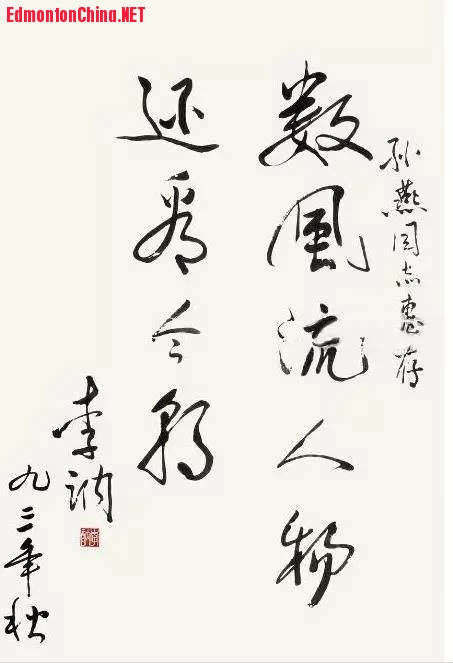 EdmontonChina.NET
孙燕同志惠存
数风流人物
还看今朝
李讷
九三年秋